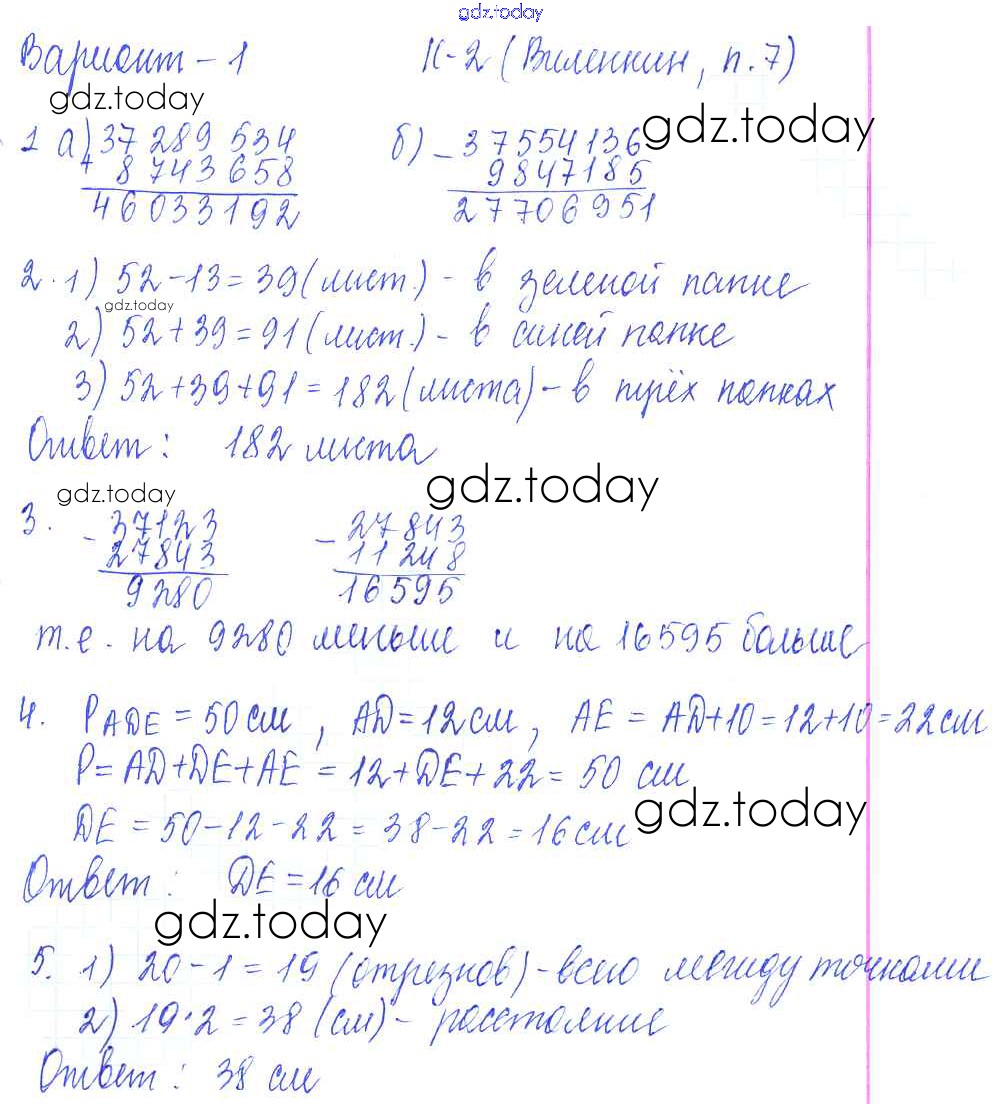 gdz.today
Вариант - 1 К-2 (Виленкин, п.7)
gdz.today
gdz.today
1 а) 37 289 534 б) - 37554136
+ 8 743 658 9847185
46033192 27706951
2. 1) 52-13=39 (лист.) - в зеленой папке
gdz.today
2) 52+39=91 (лист.) - в синей папке
3) 52+39+91=182 (листа) - в трёх папках
Ответ: 182 листа
gdz.today
gdz.today
3. - 37123 - 27843
27843 11248
9280 16595
т.е. на 9280 меньше и на 16595 больше
4. P ADE = 50 см, AD=12 см, AE = AD+10=12+10=22 см
P=AD+DE+AE = 12+DE+22=50 см
gdz.today
DE = 50-12-22=38-22=16 см
Ответ: DE=16 см
gdz.today
5. 1) 20-1=19 (отрезков) - всего между точками
2) 19·2=38 (см) - расстояние
Ответ: 38 см